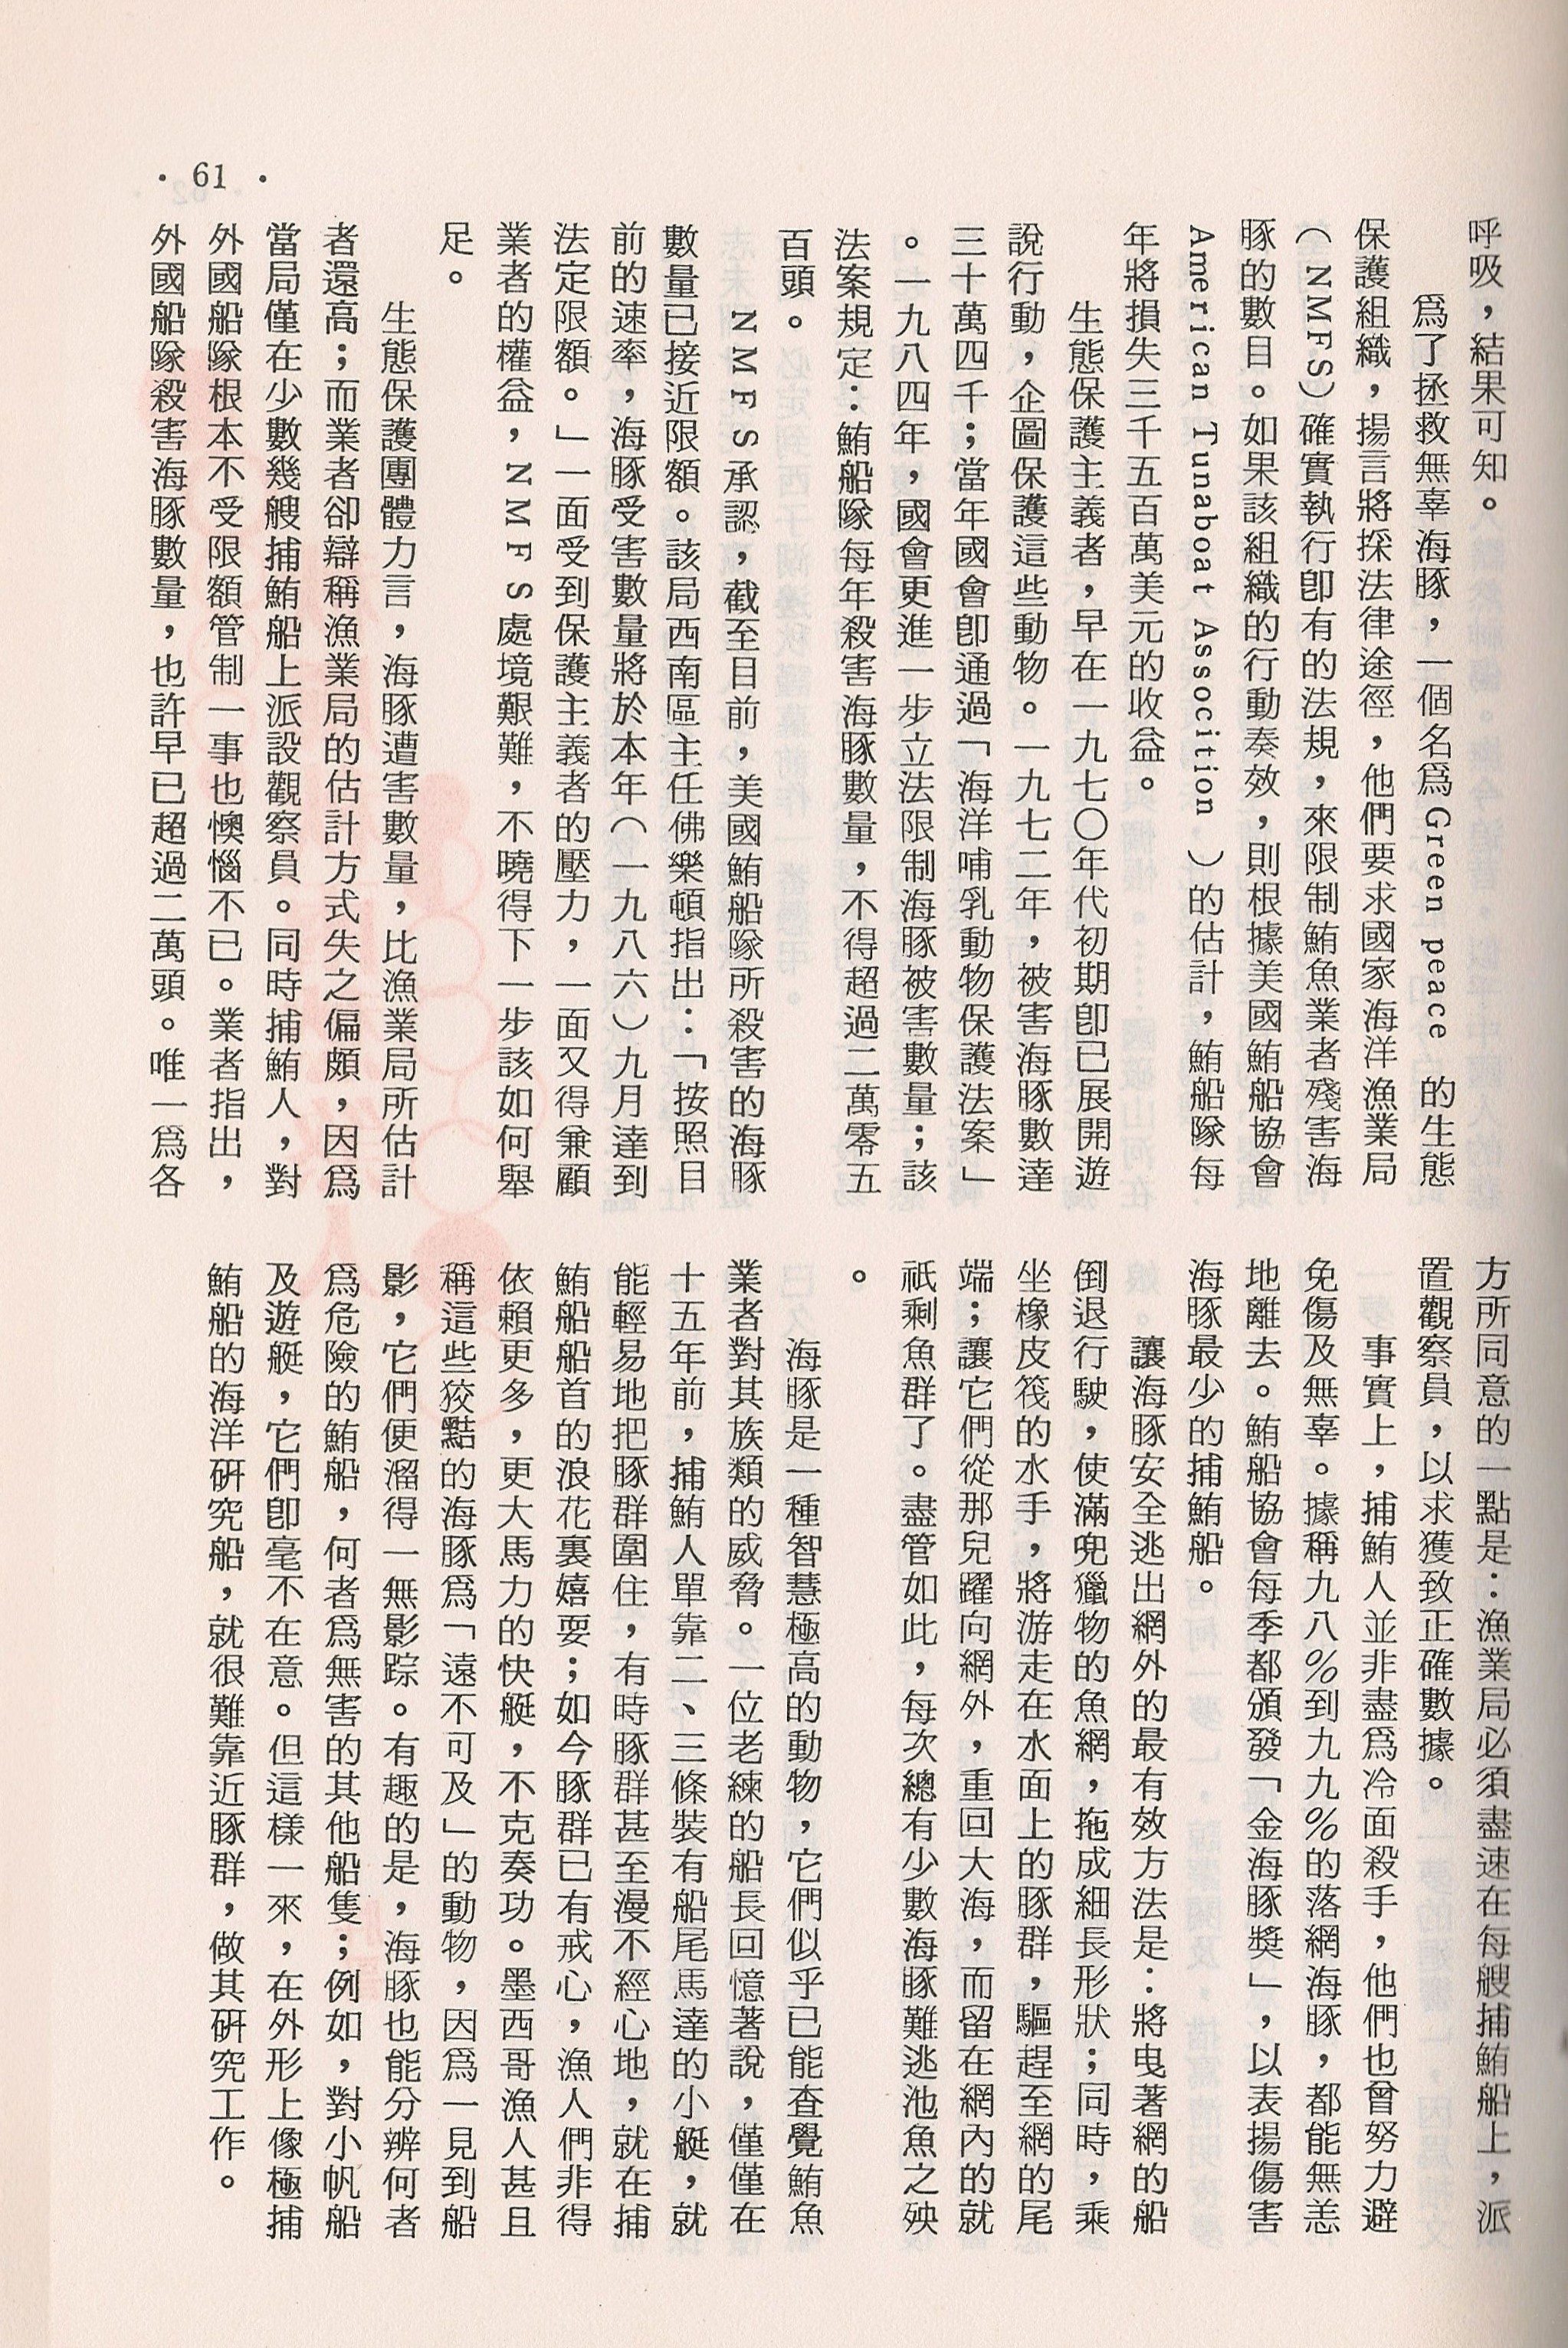 • 61 •
呼吸，結果可知。
爲了拯救無辜海豚，一個名爲Green peace 的生態
保護組織，揚言將採法律途徑，他們要求國家海洋漁業局
（NMFS）確實執行卽有的法規，來限制鮪魚業者殘害海
豚的數目。如果該組織的行動奏效，則根據美國鮪船協會
American Tunaboat Assocition ）的估計，鮪船隊每
年將損失三千五百萬美元的收益。
生態保護主義者，早在一九七〇年代初期卽已展開遊
說行動，企圖保護這些動物。一九七二年，被害海豚數達
三十萬四千；當年國會卽通過「海洋哺乳動物保護法案」
。一九八四年，國會更進一步立法限制海豚被害數量；該
法案規定：鮪船隊每年殺害海豚數量，不得超過二萬零五
百頭。
NMFS承認，截至目前，美國鮪船隊所殺害的海豚
數量已接近限額。該局西南區主任佛樂頓指出：「按照目
前的速率，海豚受害數量將於本年（一九八六）九月達到
法定限額。」一面受到保護主義者的壓力，一面又得兼顧
業者的權益，NMFS處境艱難，不曉得下一步該如何舉
足。
生態保護團體力言，海豚遭害數量，比漁業局所估計
者還高；而業者卻辯稱漁業局的估計方式失之偏頗，因爲
當局僅在少數幾艘捕鮪船上派設觀察員。同時捕鮪人，對
外國船隊根本不受限額管制一事也懊惱不已。業者指出，
外國船隊殺害海豚數量，也許早已超過二萬頭。唯一爲各
方所同意的一點是：漁業局必須盡速在每艘捕鮪船上，派
置觀察員，以求獲致正確數據。
事實上，捕鮪人並非盡爲冷面殺手，他們也曾努力避
免傷及無辜。據稱九八％到九九％的落網海豚，都能無恙
地離去。鮪船協會每季都頒發「金海豚獎」，以表揚傷害
海豚最少的捕鮪船。
讓海豚安全逃出網外的最有效方法是：將曳著網的船
倒退行駛，使滿兜獵物的魚網，拖成細長形狀；同時，乘
坐橡皮筏的水手，將游走在水面上的豚群，驅趕至網的尾
端；讓它們從那兒躍向網外，重回大海，而留在網內的就
祇剩魚群了。盡管如此，每次總有少數海豚難逃池魚之殃
。
海豚是一種智慧極高的動物，它們似乎已能查覺鮪魚
業者對其族類的威脅。一位老練的船長回憶著說，僅僅在
十五年前，捕鮪人單靠二、三條裝有船尾馬達的小艇，就
能輕易地把豚群圍住，有時豚群甚至漫不經心地，就在捕
鮪船船首的浪花裏嬉耍；如今豚群已有戒心，漁人們非得
依賴更多，更大馬力的快艇，不克奏功。墨西哥漁人甚且
稱這些狡黠的海豚爲「遠不可及」的動物，因爲一見到船
影，它們便溜得一無影踪。有趣的是，海豚也能分辨何者
爲危險的鮪船，何者爲無害的其他船隻；例如，對小帆船
及遊艇，它們卽毫不在意。但這樣一來，在外形上像極捕
鮪船的海洋硏究船，就很難靠近豚群，做其硏究工作。